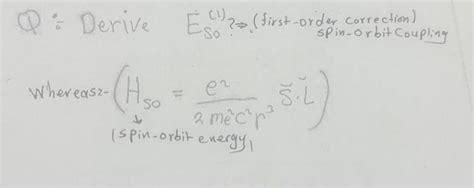 Q:- Derive E_SO^(1) ?⇒ (first-order correction)
spin-orbit coupling
whereas:- (H_SO = e²/(2 me²c²r³) S̆·L̆)
(spin-orbit energy)